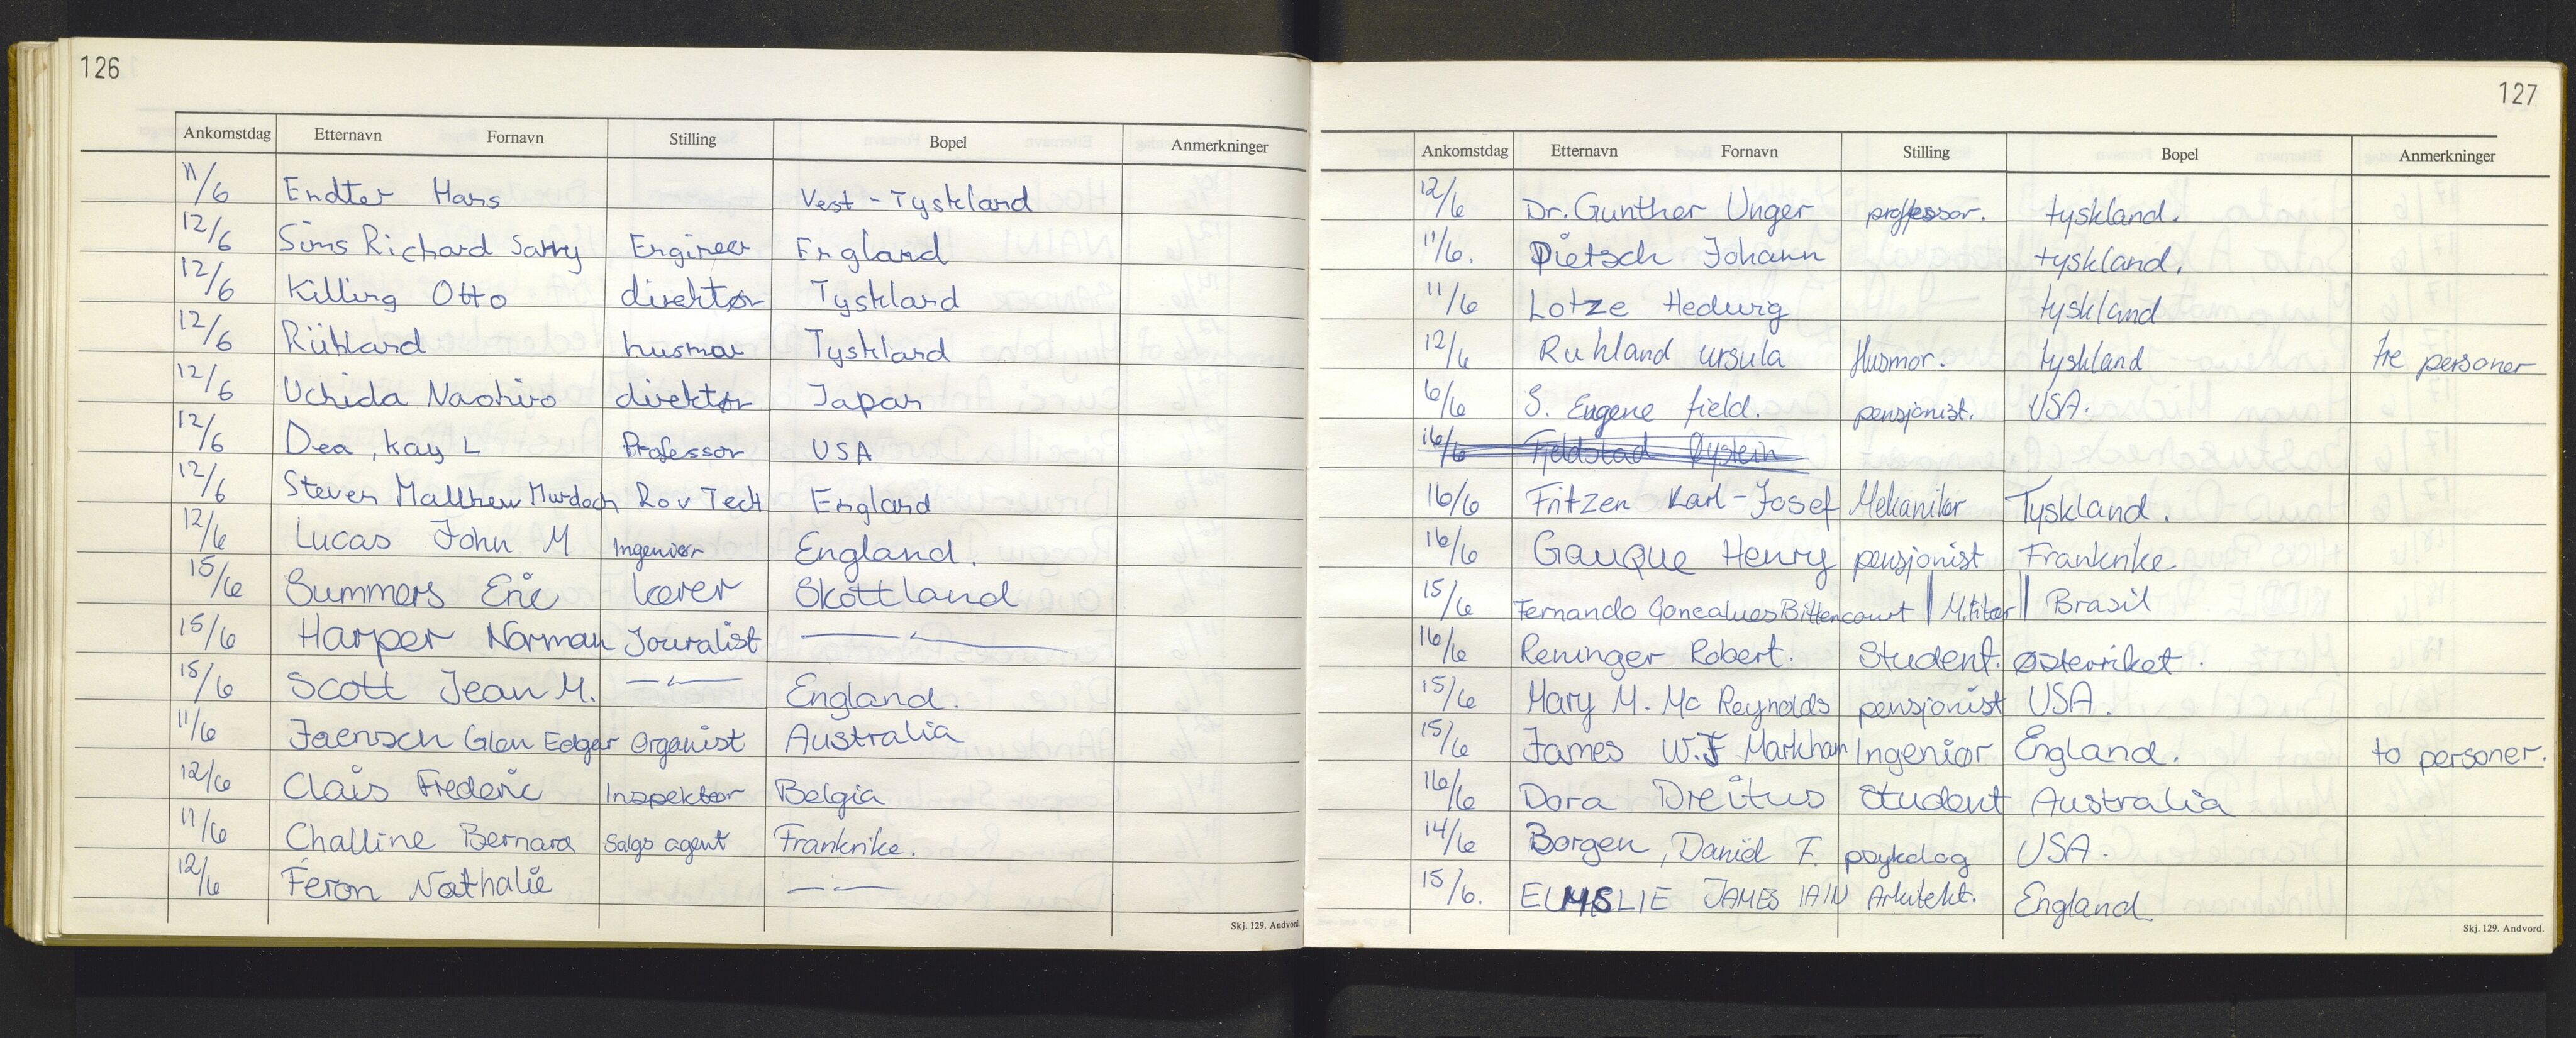 126
Ankomstdag Etternavn Fornavn Stilling Bopel Anmerkninger
11/6 Endter Hans Vest-Tyskland
12/6 Sims Richard Engineer England
12/6 Killing Otto direktør Tyskland
12/6 Rühland husmor Tyskland
12/6 Uchida Naohiro direktør Japan
12/6 Dea, Kay L Professor USA
12/6 Steven Matthew Murdoch Rov Tech England
12/6 Lucas John M Ingeniør England.
15/6 Summers Eric lærer Skottland
15/6 Harper Norman Jouralist —〃—
15/6 Scott Jean M. —〃— England.
11/6 Jaensch Glen Edgar Organist Australia
12/6 Clais Frederic Inspektør Belgia
11/6 Challine Bernard Salgs agent Frankrike.
12/6 Feron Nathalie —〃—
Skj. 129. Andvord.
127
Ankomstdag Etternavn Fornavn Stilling Bopel Anmerkninger
12/6 Dr. Gunther Unger professor. tyskland.
11/6. Dietsch Johann tyskland.
11/6 Lotze Hedwig tyskland
12/6 Ruhland ursula Husmor. tyskland tre personer
6/6 S. Eugene field. pensjonist. USA.
16/6 Fjeldstad Øystein
16/6 Fritzen Karl-Josef Mekaniker Tyskland.
16/6 Gauque Henry pensjonist Frankrike
15/6 Fernando Goncalves Bittencourt | Militær || Brasil
16/6 Reninger Robert. Student. østerriket.
15/6 Mary M. Mc Reynolds pensjonist USA.
15/6 James W.F Markham Ingeniør England. to personer.
16/6 Dora Dreitus Student Australia
14/6 Borgen, Daniel F. psykolog USA.
15/6. ELMSLIE JAMES IAIN Arkitekt. England
Skj. 129. Andvord.